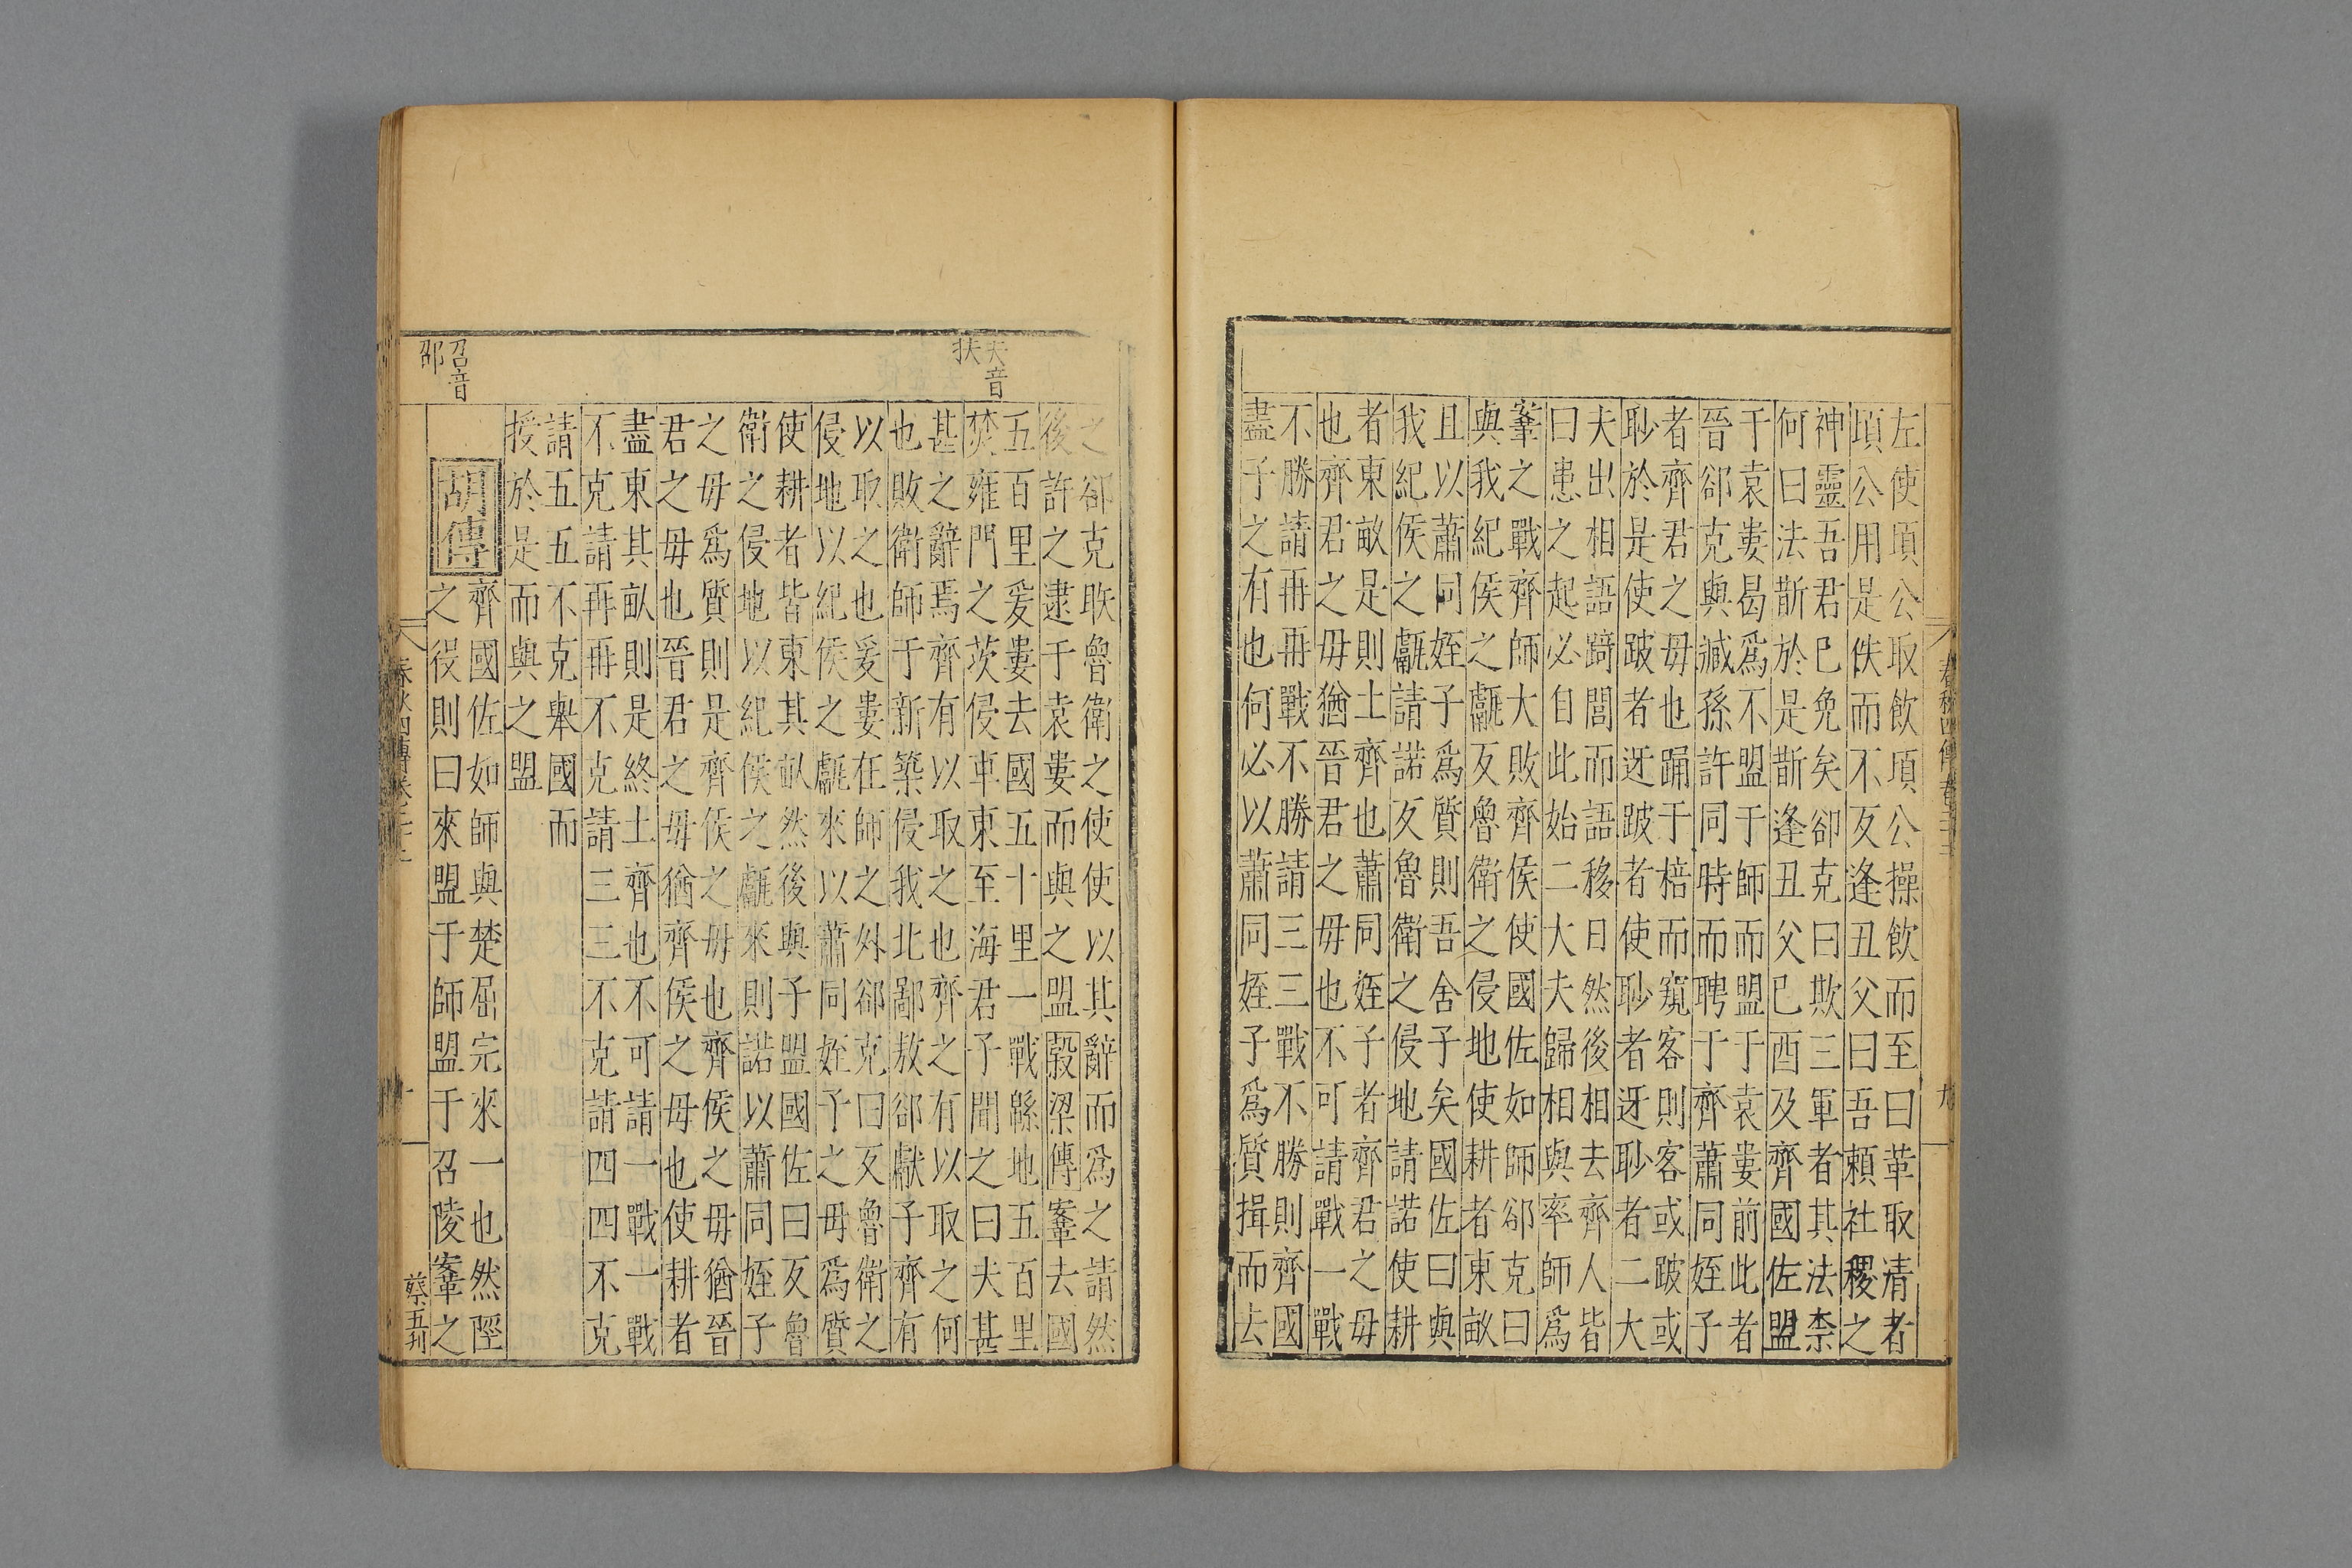 春秋四傳卷二十二
九
左使頃公取飲頃公操飲而至曰革取清者
頃公用是佚而不反逢丑父曰吾賴社稷之
神靈吾君已免矣郤克曰欺三軍者其法柰
何曰法斮於是斮逢丑父已酉及齊國佐盟
于袁婁曷爲不盟于師而盟于袁婁前此者
晉郤克與臧孫許同時而聘于齊蕭同姪子
者齊君之毋也踊于棓而窺客則客或跛或
眇於是使跛者迓跛者使眇者迓眇者二大
夫出相語踦閭而語移日然後相去齊人皆
曰患之起必自此始二大夫歸相與率師爲
鞌之戰齊師大敗齊侯使國佐如師郤克曰
與我紀侯之甗反魯衛之侵地使耕者東畝
且以蕭同姪子爲質則吾舍子矣國佐曰與
我紀侯之甗請諾反魯衛之侵地請諾使耕
者東畝是則土齊也蕭同姪子者齊君之毋
也齊君之毋猶晉君之毋也不可請戰一戰
不勝請再再戰不勝請三三戰不勝則齊國
盡子之有也何必以蕭同姪子爲質揖而去
之郤克昳魯衛之使使以其辭而爲之請然
後許之逮于袁婁而與之盟穀梁傳鞌去國
五百里爰婁去國五十里一戰緜地五百里
夫音扶
焚雍門之茨侵車東至海君子聞之曰夫甚
甚之辭焉齊有以取之也齊之有以取之何
也敗衛師于新築侵我北鄙敖郤獻子齊有
以取之也爰婁在師之外郤克曰反魯衛之
侵地以紀侯之甗來以蕭同姪子之毋爲質
使耕者皆東其畝然後與子盟國佐曰反魯
衛之侵地以紀侯之甗來則諾以蕭同姪子
之毋爲質則是齊侯之毋也齊侯之毋猶晉
君之毋也晉君之毋猶齊侯之毋也使耕者
盡東其畝則是終土齊也不可請一戰一戰
不克請再再不克請三三不克請四四不克
請五五不克舉國而
授於是而與之盟
胡傳齊國佐如師與楚屈完來一也然陘
召音邵
之役則曰來盟于師盟于召陵鞌之
十
蔡五刊